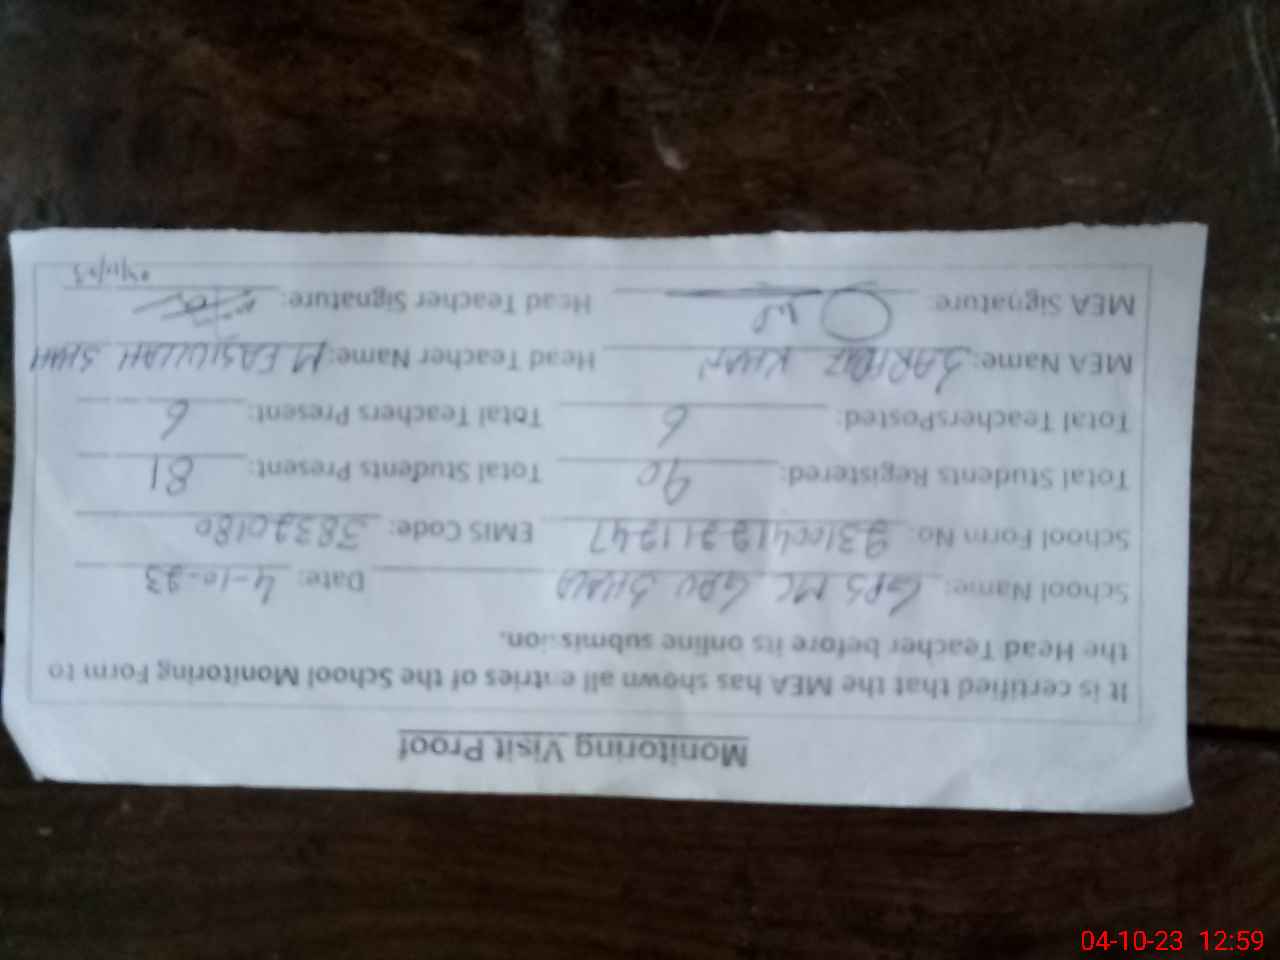 Monitoring Visit Proof
It is certified that the MEA has shown all entries of the School Monitoring Form to
the Head Teacher before its online submission.
School Name: GPS MC Date: 4-10-23
School Form No: EMIS Code: 38320180
Total Students Registered: 90 Total Students Present: 81
Total TeachersPosted: 6 Total Teachers Present: 6
MEA Name: SARFRAZ KHAN Head Teacher Name: M FASIULLAH SHAH
MEA Signature: Head Teacher Signature:
04-10-23 12:59